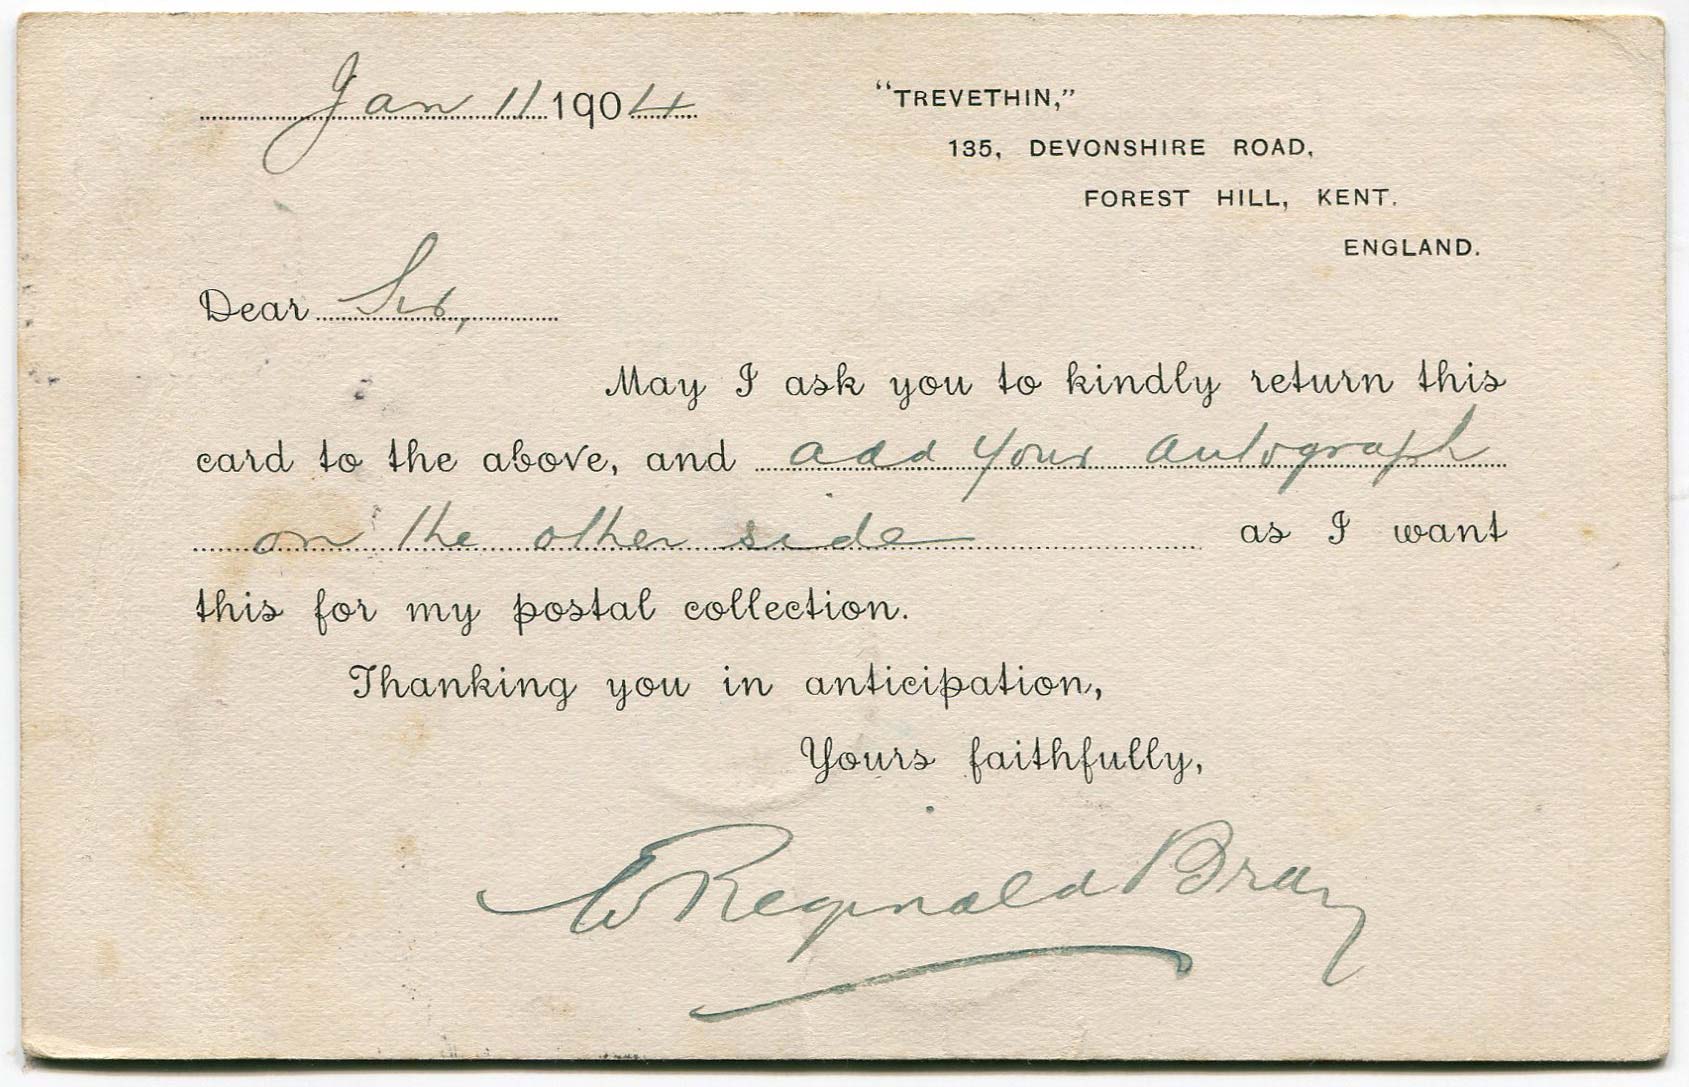 Jan 11 1904
"TREVETHIN,"
135, DEVONSHIRE ROAD,
FOREST HILL, KENT.
ENGLAND.
Dear Sir,
May I ask you to kindly return this
card to the above, and add your autograph
on the other side as I want
this for my postal collection.
Thanking you in anticipation,
Yours faithfully,
W Reginald Bray